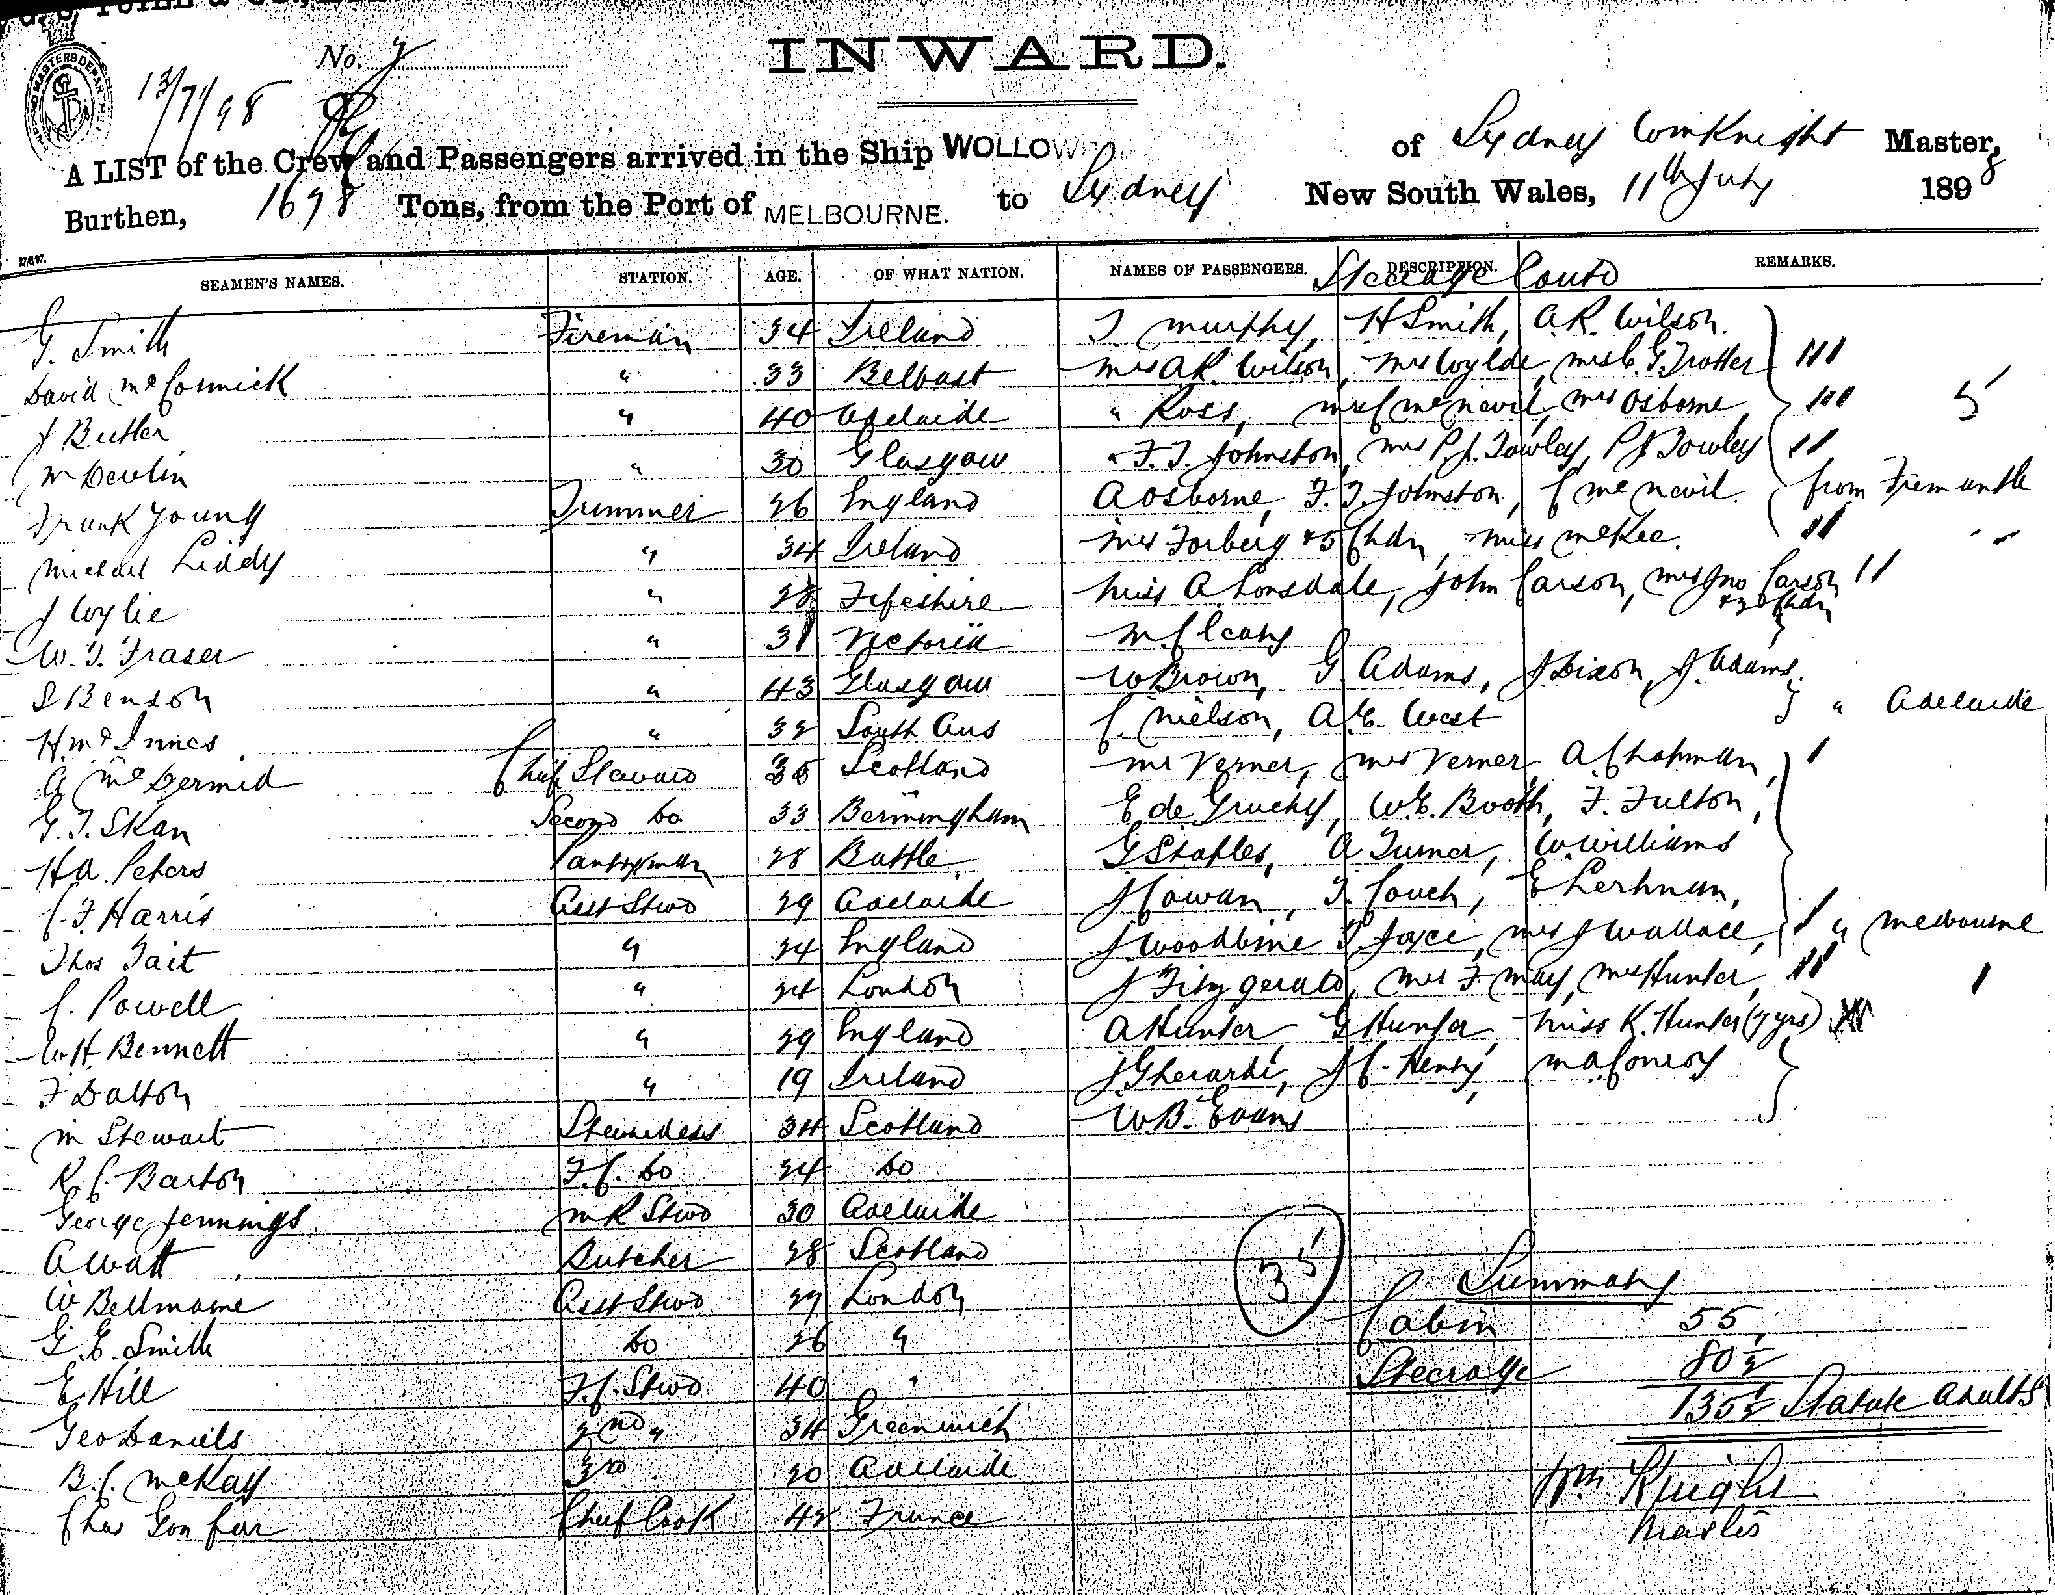 No. 7
INWARD.
13/7/98
A LIST of the Crew and Passengers arrived in the Ship WOLLOW of Sydney Wm Knight Master,
Burthen, 1698 Tons, from the Port of MELBOURNE. to Sydney New South Wales, 11th July 1898
SEAMEN'S NAMES. STATION. AGE. OF WHAT NATION. NAMES OF PASSENGERS. DESCRIPTION. REMARKS.
Steerage Contd
G. Smith Fireman 34 Ireland T Murphy, H Smith, A.R. Wilson.
David McCormick " 33 Belfast Mrs A.R. Wilson, Mrs Wylde, Mrs C. G. Trotter
J Butler " 40 Adelaide " Ross, Mrs C McNevil, Mrs Osborne 5
M Devlin " 30 Glasgow " F. T. Johnston, Mrs P. J. Towley, P J Towley
Frank Young Trimmer 26 England A Osborne, F. T. Johnston, C McNevil. from Fremantle
Michael Liddy " 34 Ireland Mrs Forberg & 5 Chdn, Miss McKee.
J Wylie " 28 Fifeshire Miss A Lonsdale, John Carson, Mrs Jno Carson
W. T. Fraser " 31 Victoria M. Cleary
S Benson " 43 Glasgow W Brown, G Adams, J Dixon, J. Adams.
H McInnes " 32 South Aus C. Nielson, A. E. West " Adelaide
A McDermid Chief Steward 35 Scotland Mr Verner, Mrs Verner, A Chapman,
G. T. Skan Second Do 33 Bermingham E de Gruchy, W. E. Booth, F. Fulton,
H A. Peters Pantryman 28 Battle G Staples, A Turner, W Williams
C. F Harris Asst Stwd 29 Adelaide J Cowan, T. Couch, E Lerhman,
Thos Tait " 24 England J Woodbine T. Joyce, Mrs J Wallace, " Melbourne
C. Powell " 24 London J Fitzgerald, Mrs F May, Mrs Hunter,
W. H. Bennett " 29 England A Hunter, G Hunter, Miss K. Hunter (7 yrs)
F Dalton " 19 Ireland J Gherardi, J C. Henry, M A Conroy
M Stewart Stewardess 34 Scotland W. B. Evans
K. C. Barton F. C. Do 24 Do
George Jennings M R Stwd 30 Adelaide
A Watt Butcher 28 Scotland
35
Summary
W Bellmaine Asst Stwd 27 London Cabin 55
G. E. Smith Do 26 " Steerage 80½
E Hill F. C. Stwd 40 " 135½ Statute Adults
Geo Daniels 2nd " 34 Greenwich
B. C. McKay 3rd 20 Adelaide Wm Knight
Chas Gonfar Chief Cook 42 France Master